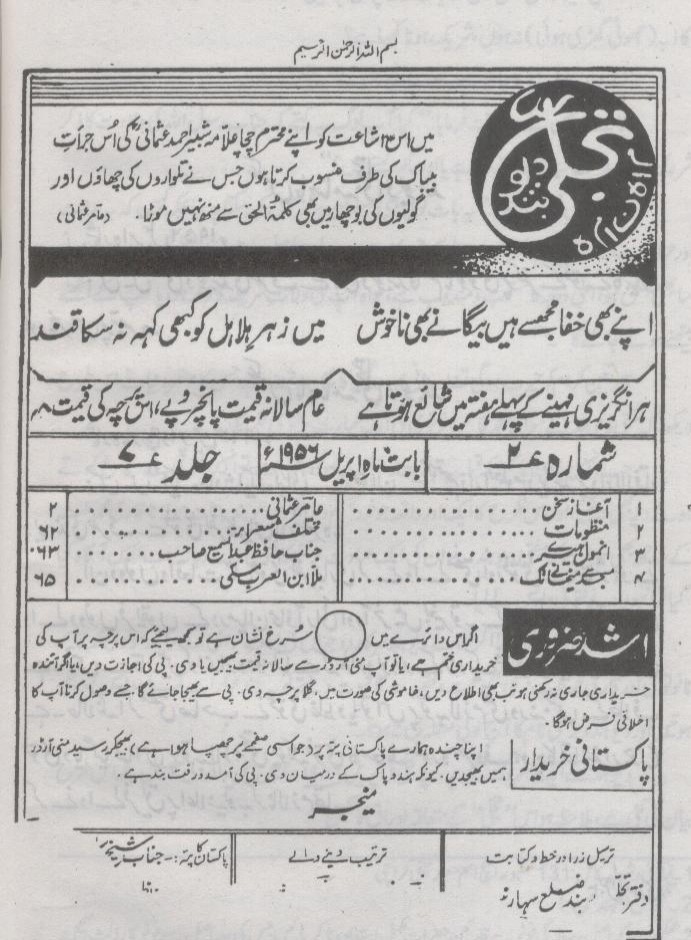 بسم اللہ الرحمٰن الرحیم
تجلی
دیوبند
ماہنامہ
میں اس اشاعت کو اپنے محترم چچا علامہ شبیر احمد عثمانیؒ کی اُس جرأتِ
بیباک کی طرف منسوب کرتا ہوں جس نے تلواروں کی چھاؤں اور
گولیوں کی بوچھار میں بھی کلمۃ الحق سے منھ نہیں موڑا۔ (عامر عثمانی)
اپنے بھی خفا مجھسے ہیں بیگانے بھی ناخوش میں زہرِ ہلاہل کو کبھی کہہ نہ سکا قند
ہر انگریزی مہینے کے پہلے ہفتہ میں شائع ہوتا ہے عام سالانہ قیمت پانچروپے، اس پرچہ کی قیمت ۸؍
شمارہ ۲ بابت ماہ اپریل ۱۹۵۶ء جلد
۱ آغازِ سخن عامر عثمانی ۲
۲ منظومات مختلف شعراء ۶۲
۳ انمول ہیرے جناب حافظ عبدالسمیع صاحب ۶۳
۴ مسجد سے میخانے تک ملا ابن العرب مکی ۶۵
اشد ضروری
اگر اس دائرے میں سرخ نشان ہے تو سمجھ لیجئے کہ اس پرچہ پر آپ کی
خریداری ختم ہے، یا تو آپ منی آرڈر سے سالانہ قیمت بھیجیں یا وی۔ پی کی اجازت دیں، یا اگر آئندہ
خریداری جاری نہ رکھنی ہو تب بھی اطلاع دیں، خاموشی کی صورت میں، اگلا پرچہ وی۔ پی سے بھیجا جائے گا۔ جسے وصول کرنا آپ کا
اخلاقی فرض ہوگا۔
پاکستانی خریدار
اپنا چندہ ہمارے پاکستانی پتہ پر (جو اسی صفحے پر چھپا ہوا ہے) بھیجکر رسید منی آرڈر
ہمیں بھیجدیں۔ کیونکہ ہند و پاک کے درمیان وی۔ پی کی آمد و رفت بند ہے۔
منیجر
ترسیل زر اور خط و کتابت
دفتر تجلی
بند ضلع سہارنـ
ترتیب دینے والے
پاکستان کا پتہ:۔ جناب